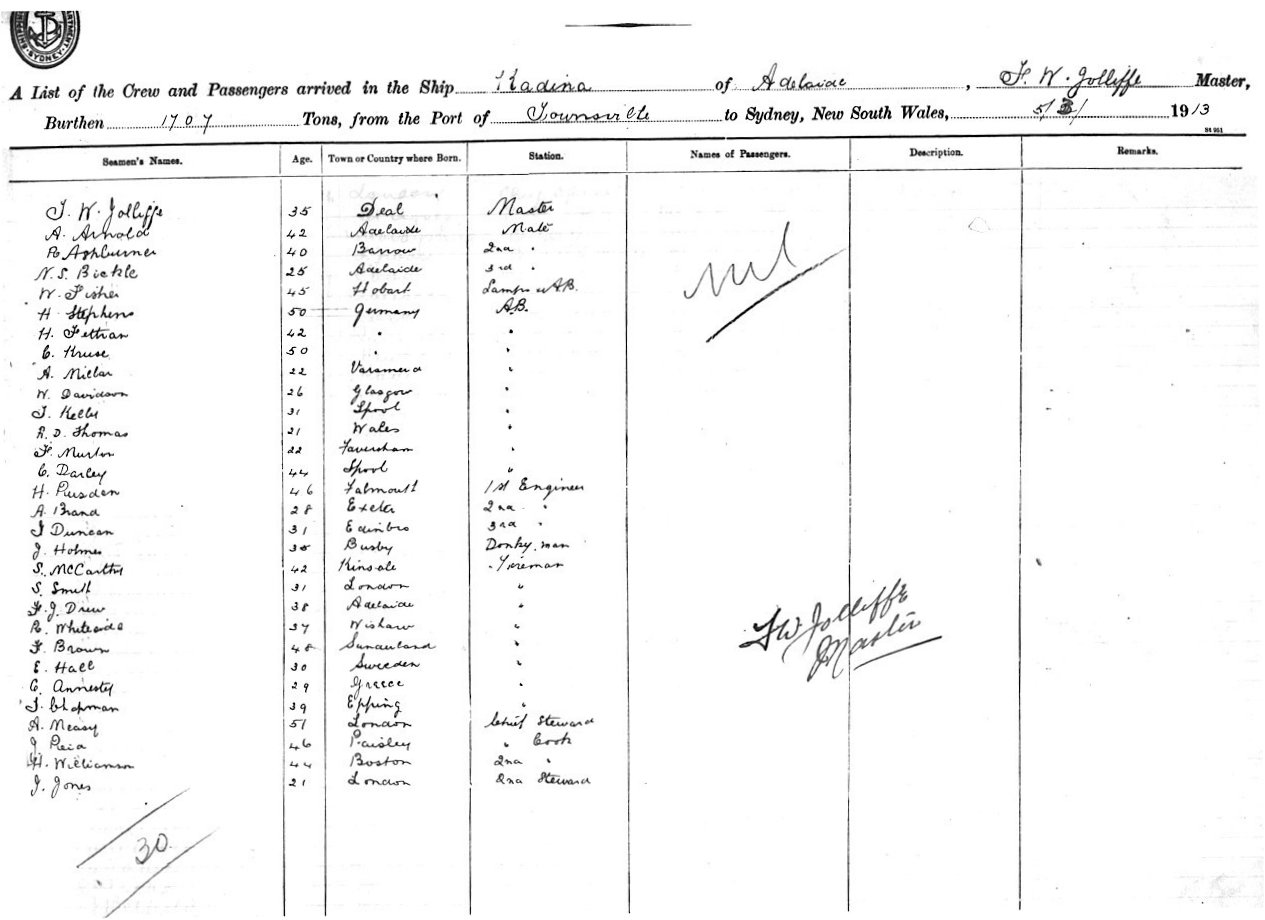 SYDNEY
A List of the Crew and Passengers arrived in the Ship Kadina of Adelaide, F. W. Jolliffe Master,
Burthen 1707 Tons, from the Port of Townsville to Sydney, New South Wales, 5/3/1913
Seamen's Names. Age. Town or Country where Born. Station. Names of Passengers. Description. Remarks.
F. W. Jolliffe 35 Deal Master
A. Arnold 42 Adelaide Mate
R Ashburner 40 Barrow 2nd "
N. S. Bickle 25 Adelaide 3rd "
W. Fisher 45 Hobart Lamps & AB.
H. Stephens 50 Germany A.B.
H. Fettran 42 " "
C. Kruse 50 " "
A. Millar 22 "
W. Davidson 26 Glasgow "
J. Kelly 31 Lpool "
R. D. Thomas 21 Wales "
F. Murton 22 Faversham "
C. Darley 44 Lpool "
H. 46 Falmouth 1st Engineer
A. Brand 28 Exeter 2nd "
J Duncan 31 Edinbro 3rd "
J. Holmes 35 Busby Donkyman
S. McCarthy 42 Kinsale Fireman
S. Smith 31 London "
F. J. Drew 38 Adelaide "
R. Whiteside 37 Wishaw "
F. Brown 48 Sunderland "
E. Hall 30 Sweeden "
C. Annesty 29 Greece "
J. Chapman 39 Epping "
A. Measy 51 London Chief Steward
J Reid 46 Paisley " Cook
H. Williamson 44 Boston 2nd "
J. Jones 21 London 2nd Steward
Nil
FW Jolliffe
Master
30